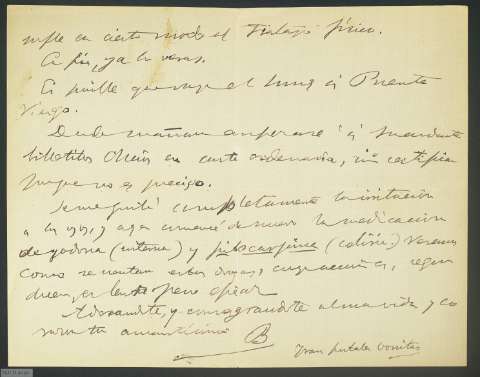 en cierto modo el trabajo físico.
A fin, ya lo veras.
Es posible que vaya el lunes á Puente
Viesgo.
Desde mañana empezaré á mandarte
billetitos en carta ordenaria, sin certificar
porque no es preciso.
Se me quitó completamente la irritación
a los ojos, y ayer comencé de nuevo la medicación
de yoduro (interna) y pilocarpina (colirio) Veremos
como se portan estas drogas, cuya acción, según
dicen, es lenta pero eficaz
Adorandote, y consagrandote alma vida y co
razon tu amantísimo B